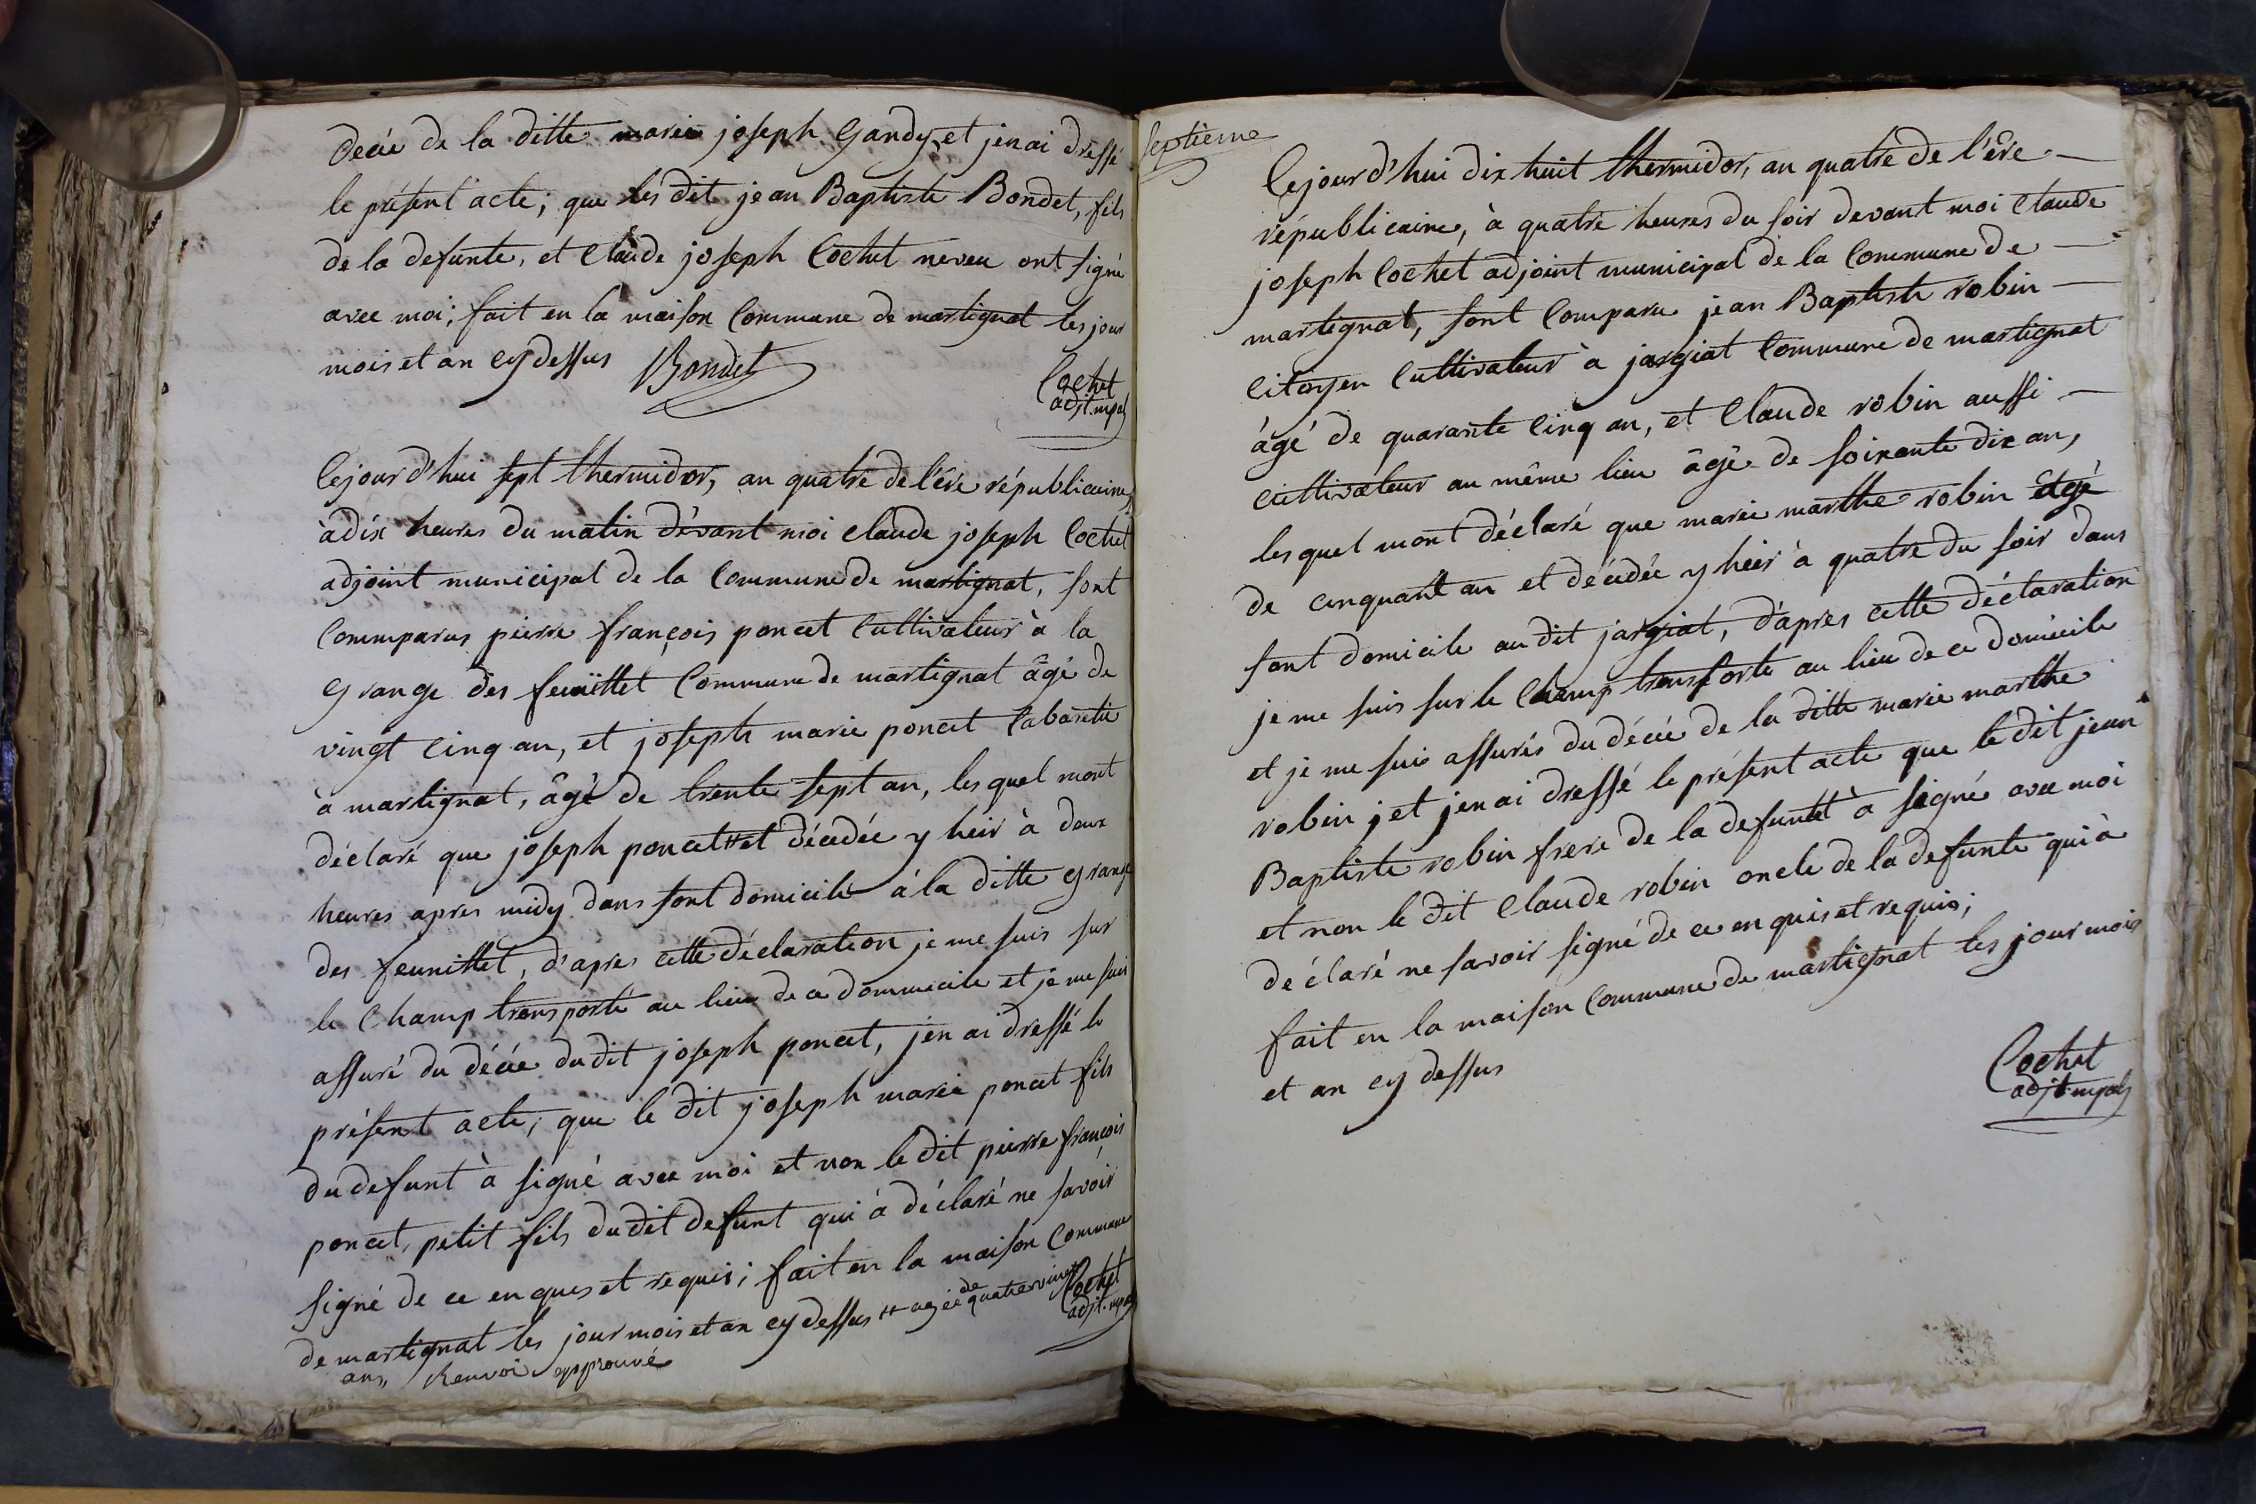 décée de la ditte marie joseph Gandy, et jenai dressé
le présent acte; que les dit jean Baptiste Bondet, fils
de la defunte, et Claude joseph Cochet neveu ont signé
avec moi; fait en la maison Commune de martignat les jour
mois et an cy dessus Bondet
Cochet
adjt. mpal
Cejourd'hui sept thermidor, an quatre de l'ére républicaine,
à dix heures du matin dévant moi claude joseph Cochet
adjoint municipal de la Commune de martignat, sont
Commparus pierre françois poncet Cultivateur à la
grange dés feuillet Commune de martignat âgé de
vingt Cinq an, et joseph marie poncet Cabaretié
à martignat, âgé de trente sept an, les quel mont
déclaré que joseph poncet ++ et décédée y heir à deux
heures apres midy dans sont domicile à la ditte grange
des feuillet, d'apres cette déclaration je me suis sur
le Champ transporté au lieu de ce dommicile et je me suis
assuré du décée du dit joseph poncet, jen ai dressé le
présent acte; que le dit joseph marie poncet fils
du defunt à signé avec moi et non le dit pierre françois
poncet, petit fils du dit defunt qui à déclaré ne savoir
signé de ce enques et requis; fait en la maison Commune
de martignat les jour mois et an cy dessus ++ agée de quatre vingt
ans,, Renvoi approuvé
Cochet
adjt. mpal
Septieme
Cejourd'hui dix huit thermidor, an quatre de l'ére
républicaine, à quatre heures du soir devant moi Claude
joseph Cochet adjoint municipal de la Commune de
martignat, sont Comparu jean Baptiste robin
Citoyen Cultivateur à jargiat Commune de martignat
âgé de quarante Cinq an, et Claude robin aussi
Cultivateur au même lieu âgé de soixante dix an,
les quel mont déclaré que marie marthe robin âgé
de cinquant an et décédée y heir à quatre du soir dans
sont domicile au dit jargiat, d'apres cette déclaration
je me suis sur le Champ transporte au lieu de ce domicile
et je me suis assurés du décée de la ditte marie marthe
robin j et jen ai dressé le présent acte que le dit jean
Baptiste robin frere de la defuntet à signé avec moi
et non le dit Claude robin oncle de la defunte qui à
déclaré ne savoir signé de ce enquis et requis;
fait en la maison Commune de martignat les jour mois
et an cy dessus
Cochet
adjt. mpal